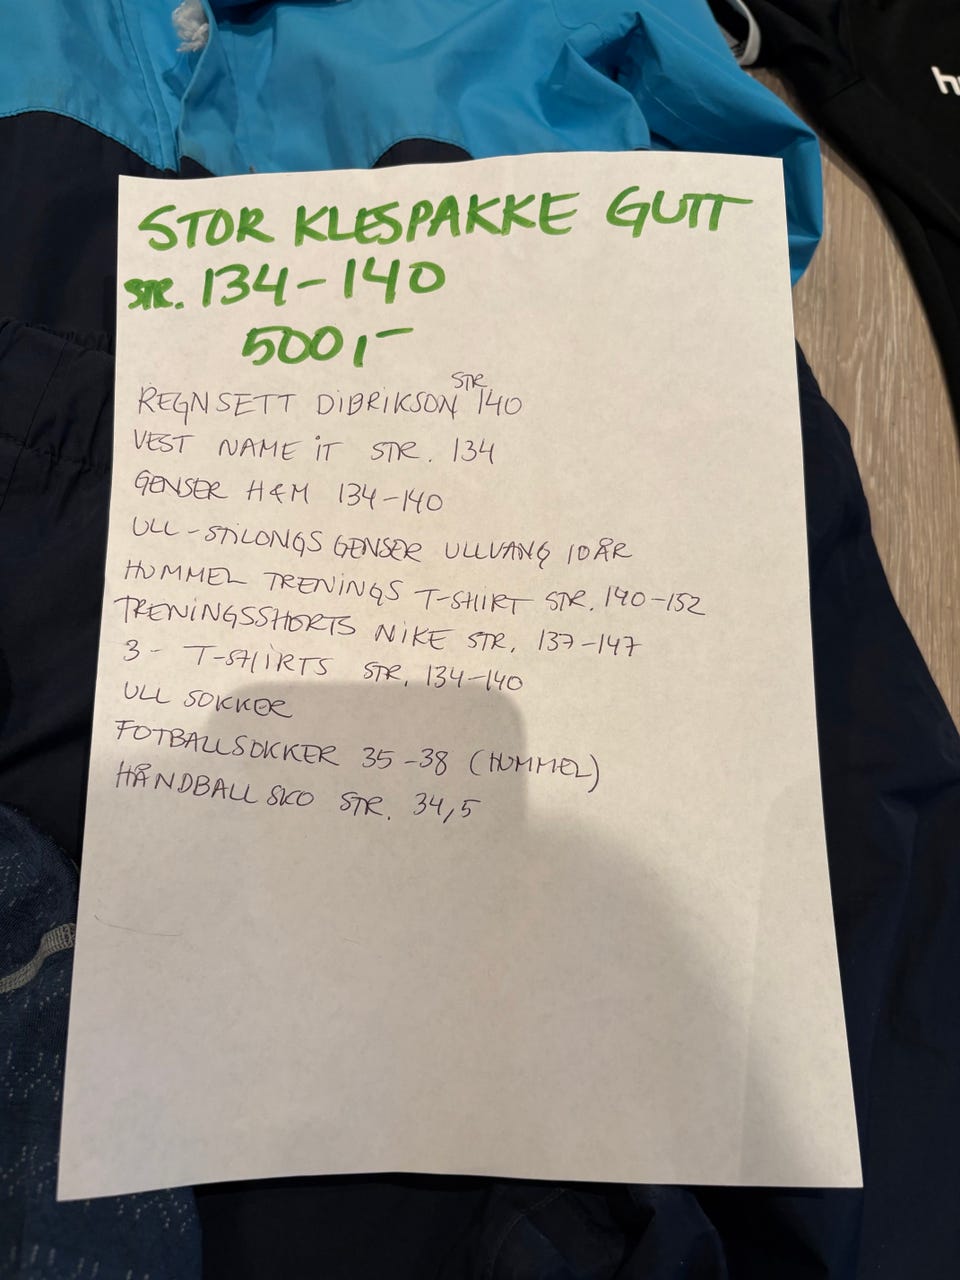 STOR KLESPAKKE GUTT
STR. 134-140
500,-
REGNSETT DIBRIKSON STR 140
VEST NAME IT STR. 134
GENSER H&M 134-140
ULL-STILONGS GENSER ULLVANG 10 ÅR
HUMMEL TRENINGS T-SHIRT STR. 140-152
TRENINGSSHORTS NIKE STR. 137-147
3- T-SHIRTS STR. 134-140
ULL SOKKER
FOTBALLSOKKER 35-38 (HUMMEL)
HÅNDBALL SKO STR. 34,5